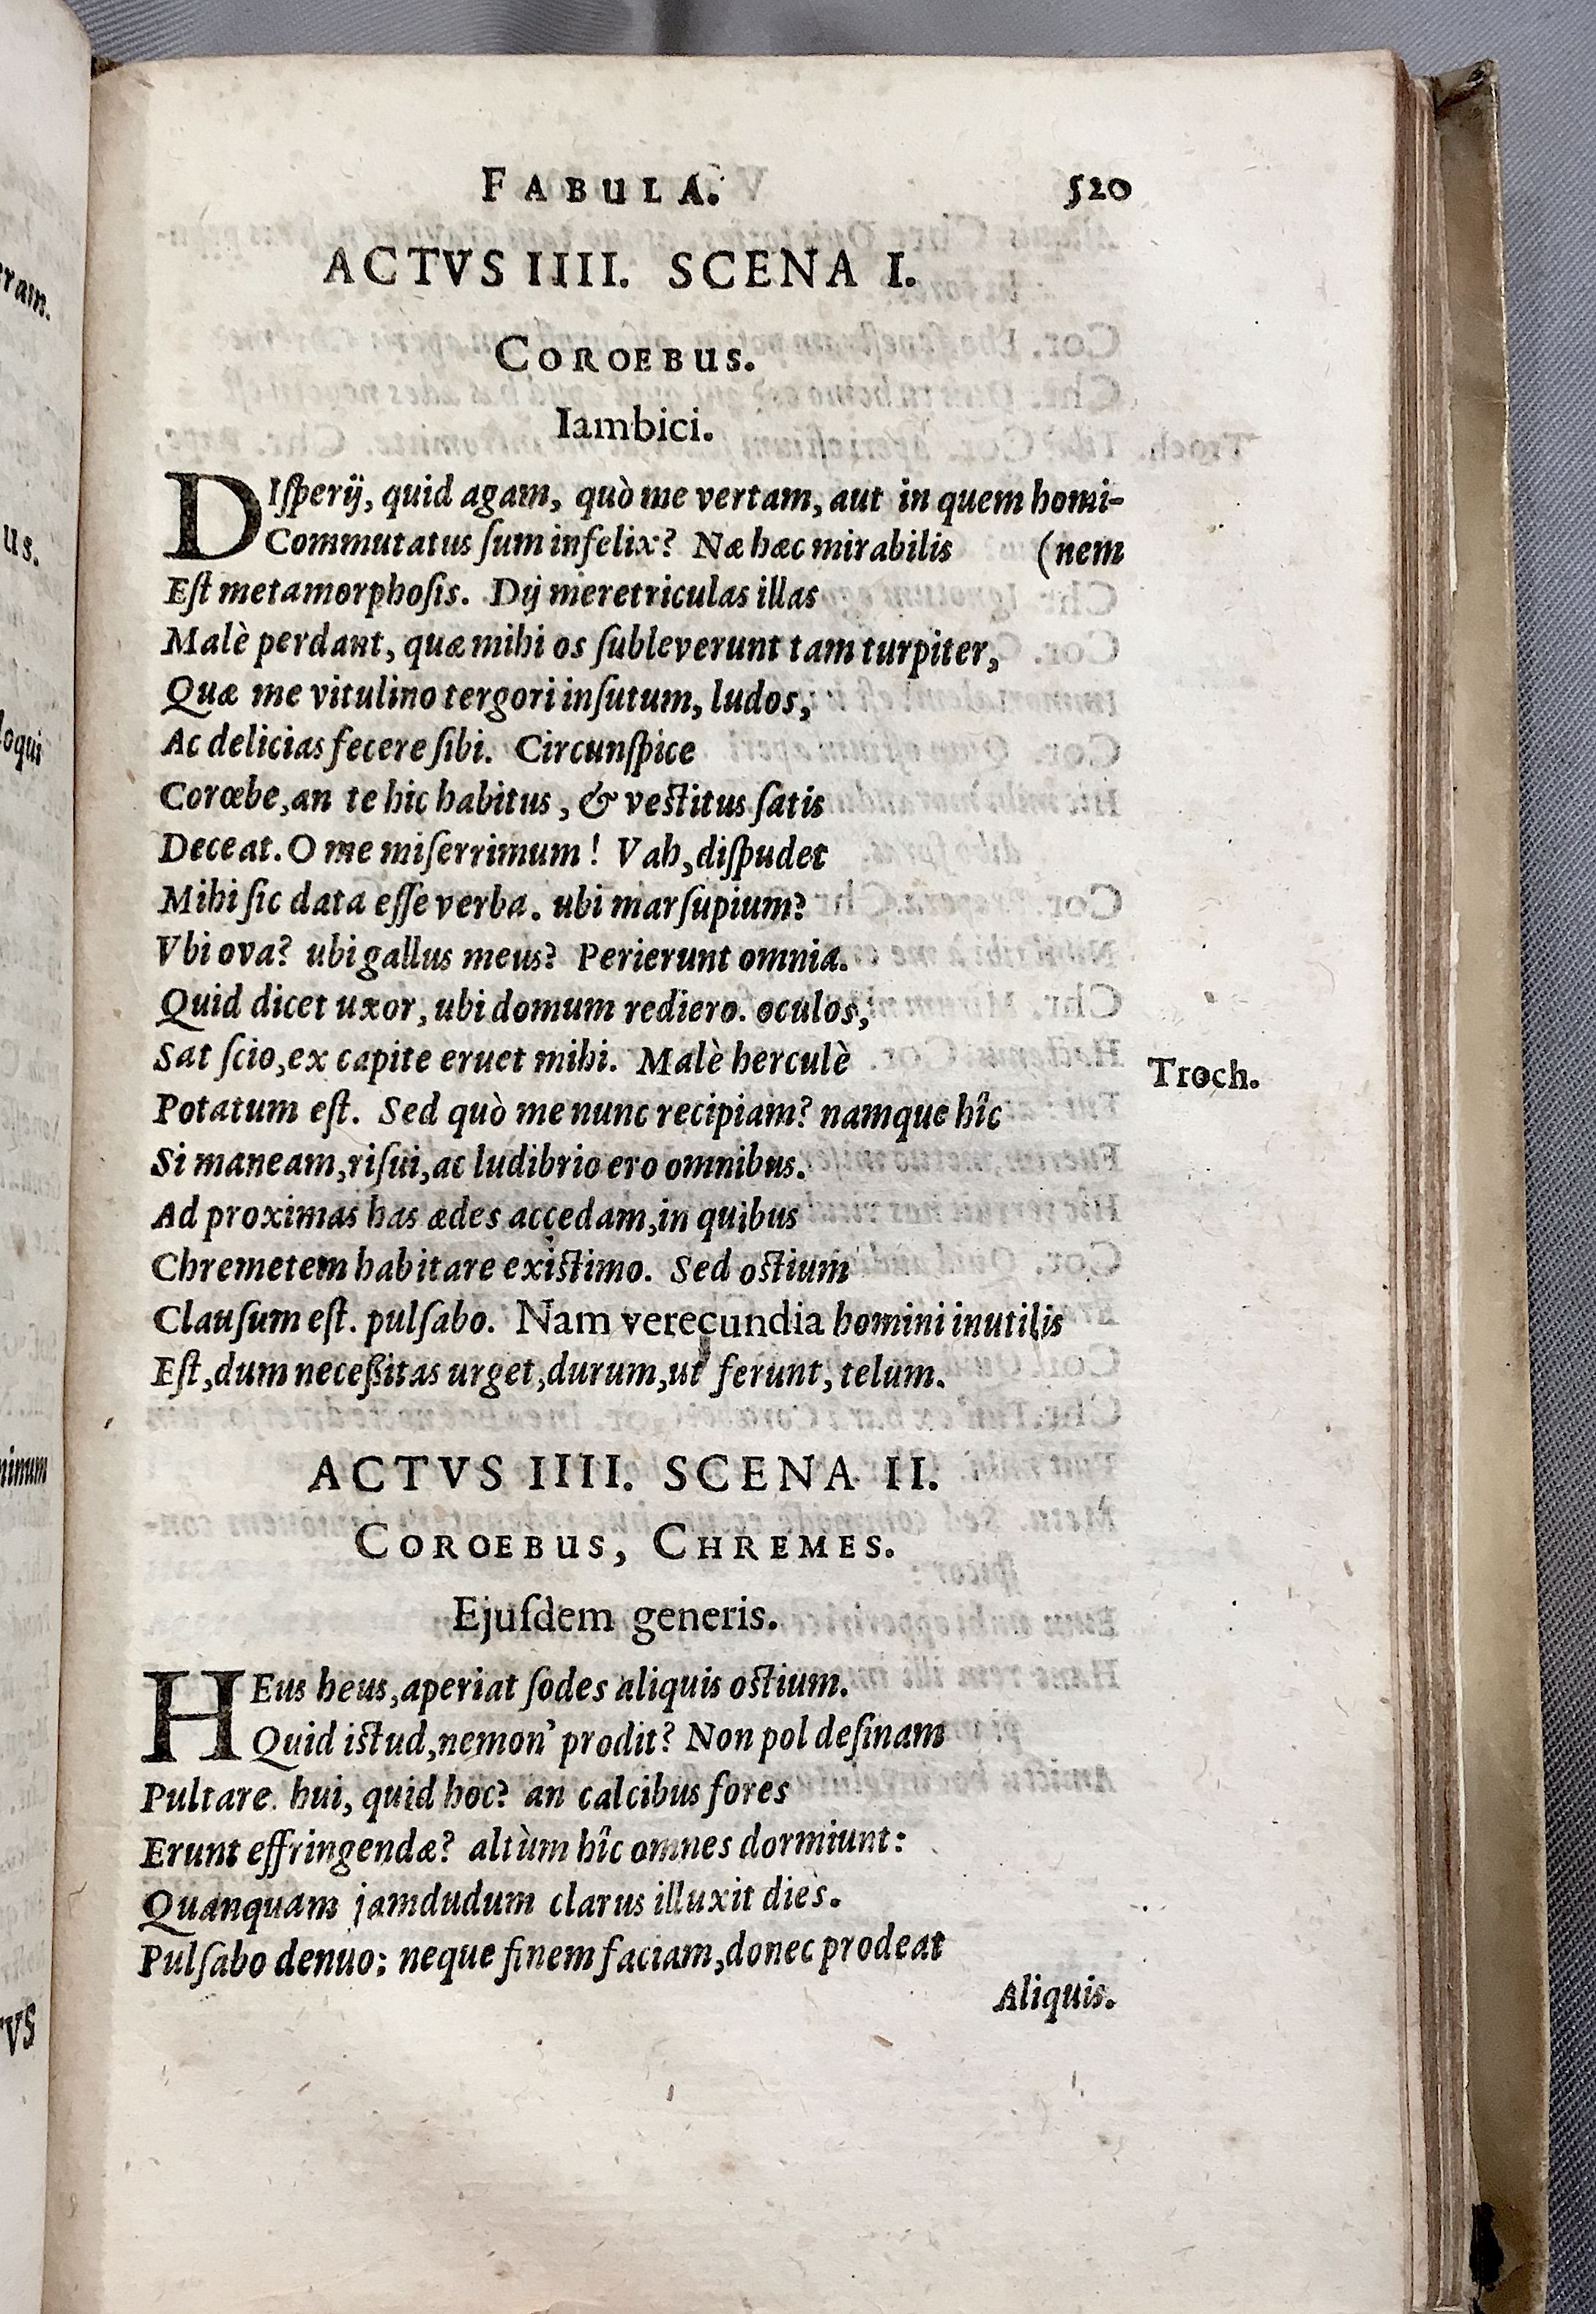 FABULA. 520
ACTVS IIII. SCENA I.
COROEBUS.
Iambici.
DIſperij, quid agam, quò me vertam, aut in quem homi-
Commutatus ſum infelix? Næ hæc mirabilis (nem
Eſt metamorphoſis. Dij meretriculas illas
Malè perdant, quæ mihi os ſubleverunt tam turpiter,
Quæ me vitulino tergori inſutum, ludos,
Ac delicias fecere ſibi. Circunſpice
Corœbe, an te hic habitus, & veſtitus ſatis
Deceat. O me miſerrimum! Vah, diſpudet
Mihi ſic data eſſe verba. ubi marſupium?
Vbi ova? ubi gallus meus? Perierunt omnia.
Quid dicet uxor, ubi domum rediero. oculos,
Sat ſcio, ex capite eruet mihi. Malè herculè
Troch.
Potatum eſt. Sed quò me nunc recipiam? namque hîc
Si maneam, riſui, ac ludibrio ero omnibus.
Ad proximas has ædes accedam, in quibus
Chremetem habitare exiſtimo. Sed oſtium
Clauſum eſt. pulſabo. Nam verecundia homini inutilis
Eſt, dum neceßitas urget, durum, ut ferunt, telum.
ACTVS IIII. SCENA II.
COROEBUS, CHREMES.
Ejuſdem generis.
HEus heus, aperiat ſodes aliquis oſtium.
Quid iſtud, nemon' prodit? Non pol deſinam
Pultare. hui, quid hoc? an calcibus fores
Erunt effringendæ? altùm hîc omnes dormiunt:
Quanquam jamdudum clarus illuxit dies.
Pulſabo denuo: neque finem faciam, donec prodeat
Aliquis.